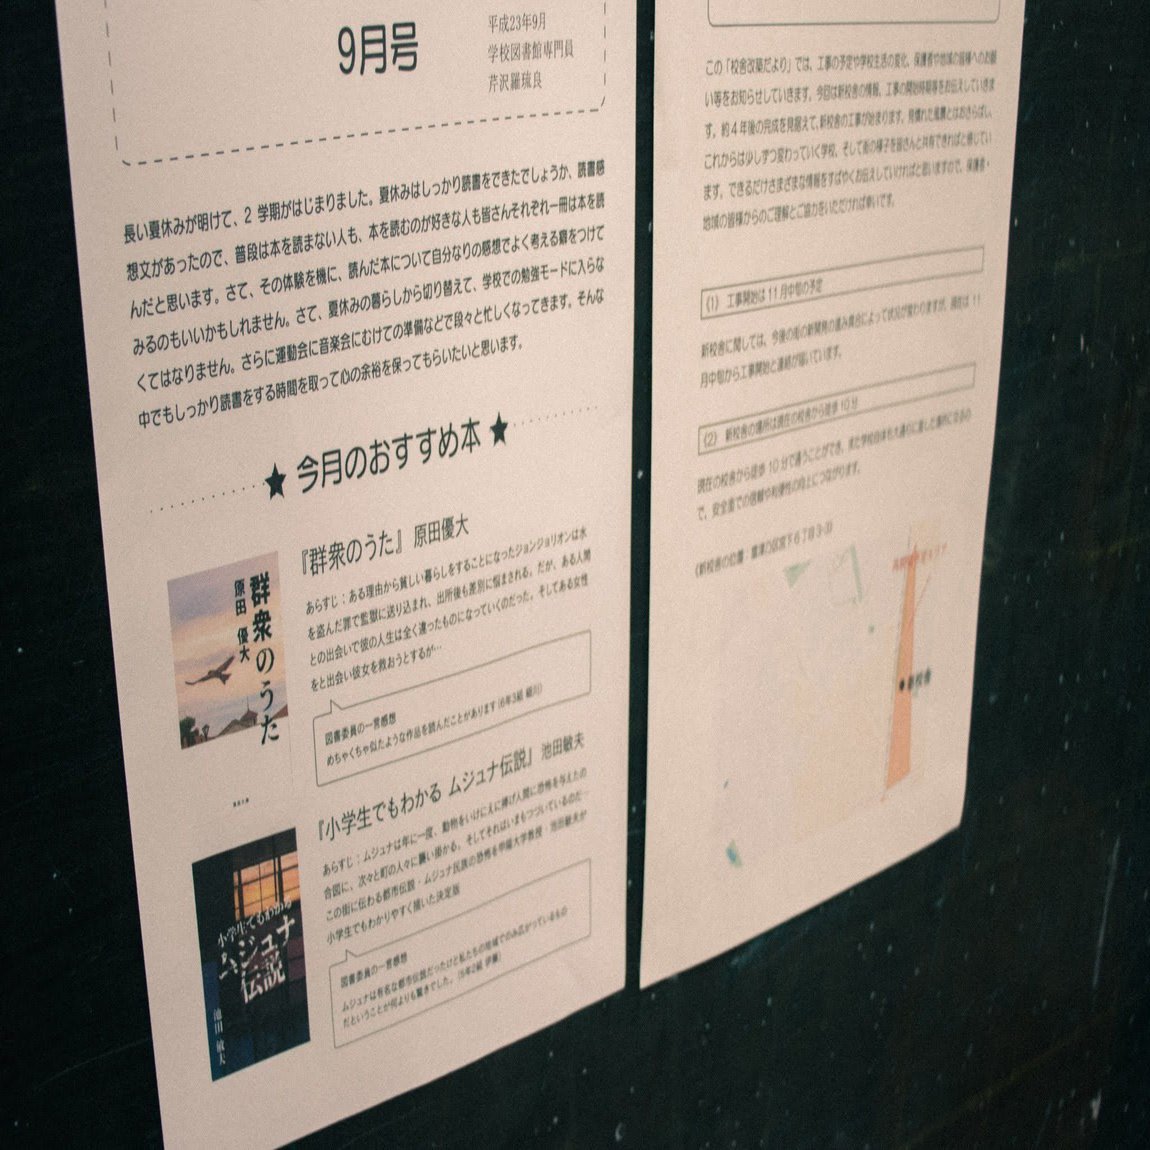 9月号
平成23年9月
学校図書館専門員
芹沢羅琉良
長い夏休みが明けて、2 学期がはじまりました。夏休みはしっかり読書をできたでしょうか、読書感
想文があったので、普段は本を読まない人も、本を読むのが好きな人も皆さんそれぞれ一冊は本を読
んだと思います。さて、その体験を機に、読んだ本について自分なりの感想でよく考える癖をつけて
みるのもいいかもしれません。さて、夏休みの暮らしから切り替えて、学校での勉強モードに入らな
くてはなりません。さらに運動会に音楽会にむけての準備などで段々と忙しくなってきます。そんな
中でもしっかり読書をする時間を取って心の余裕を保ってもらいたいと思います。
★ 今月のおすすめ本 ★
群衆のうた
原田 優大
『群衆のうた』 原田優大
あらすじ：ある理由から貧しい暮らしをすることになったジョンジョリオンは水
を盗んだ罪で監獄に送り込まれ、出所後も差別に悩まされる。だが、ある人間
との出会いで彼の人生は全く違ったものになっていくのだった。そしてある女性
をと出会い彼女を救おうとするが…
図書委員の一言感想
めちゃくちゃ似たような作品を読んだことがあります (6年3組 細川)
小学生でもわかる
ムジュナ
伝説
池田 敏夫
『小学生でもわかる ムジュナ伝説』 池田敏夫
あらすじ：ムジュナは年に一度、動物をいけにえに捧げ人間に恐怖を与えたの
合図に、次々と町の人々に襲い掛かる。そしてそれはいまもつづいているのだ…
この街に伝わる都市伝説・ムジュナ民族の恐怖を甲陽大学教授・池田敏夫が
小学生でもわかりやすく描いた決定版
図書委員の一言感想
ムジュナは有名な都市伝説だったけど私たちの地域でのみ広がっているもの
だということが何よりも驚きでした。(5年2組 伊藤)
この「校舎改築だより」では、工事の予定や学校生活の変化、保護者や地域の皆様へのお願
い等をお知らせしていきます。今回は新校舎の情報、工事の開始時期等をお伝えしていきま
す。約4年後の完成を見据えて、新校舎の工事が始まります。見慣れた風景とはおさらばし、
これからは少しずつ変わっていく学校、そして街の様子を皆さんと共有できればと感じてい
ます。できるだけさまざまな情報をすばやくお伝えしていければと思いますので、保護者・
地域の皆様からのご理解とご協力をいただければ幸いです。
(1) 工事開始は11月中旬の予定
新校舎に関しては、今後の街の新開発の進み具合によって状況が変わりますが、現在は 11
月中旬から工事開始と連絡が届いています。
(2) 新校舎の場所は現在の校舎から徒歩 10分
現在の校舎から徒歩 10分で通うことができ、また学校自体も大通りに面した場所になるの
で、安全面での信頼や利便性の向上につながります。
新校舎